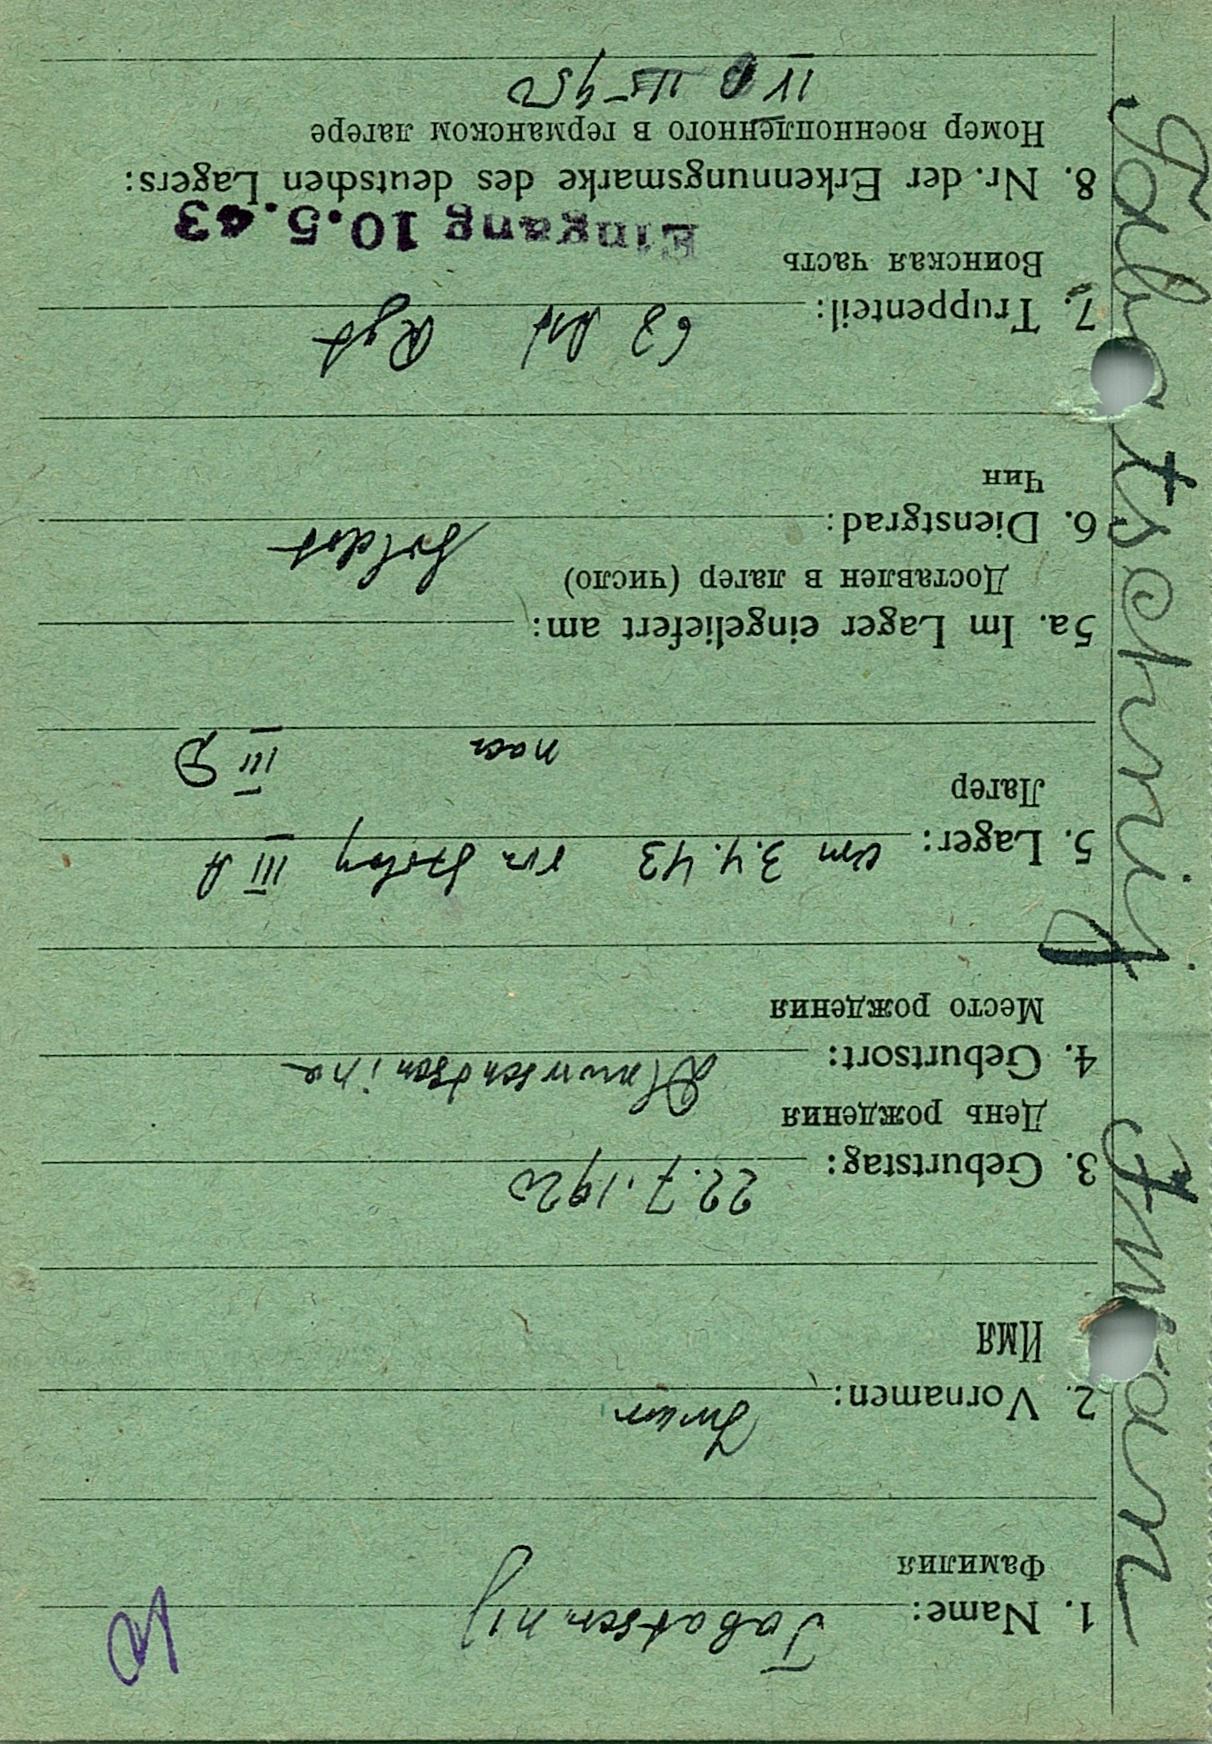 1. Name: Tabatschnij
Фамилия
2. Vornamen: Iwan
Имя
3. Geburtstag: 22.7.1920
День рождения
4. Geburtsort:
Место рождения
5. Lager: am 3.4.43 v. Stalag III A
Лагер
nach III D
5a. Im Lager eingeliefert am:
Доставлен в лагер (число)
6. Dienstgrad: Soldat
Чин
7. Truppenteil: 68 Art Rgt
Воинская часть
Eingang 10.5.43
8. Nr. der Erkennungsmarke des deutschen Lagers:
Номер военнопленного в германском лагере
IV B
Tabatschnij Iwan